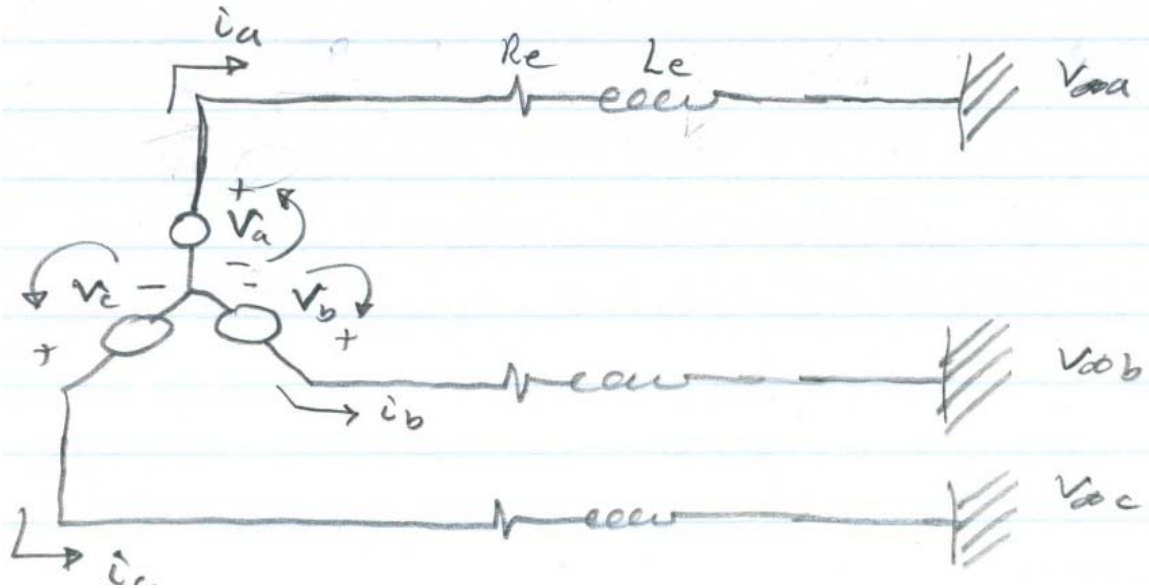 ia
Re Le V∞a
+
Va
-
Vc - - Vb
+ +
V∞b
ib
V∞c
ic